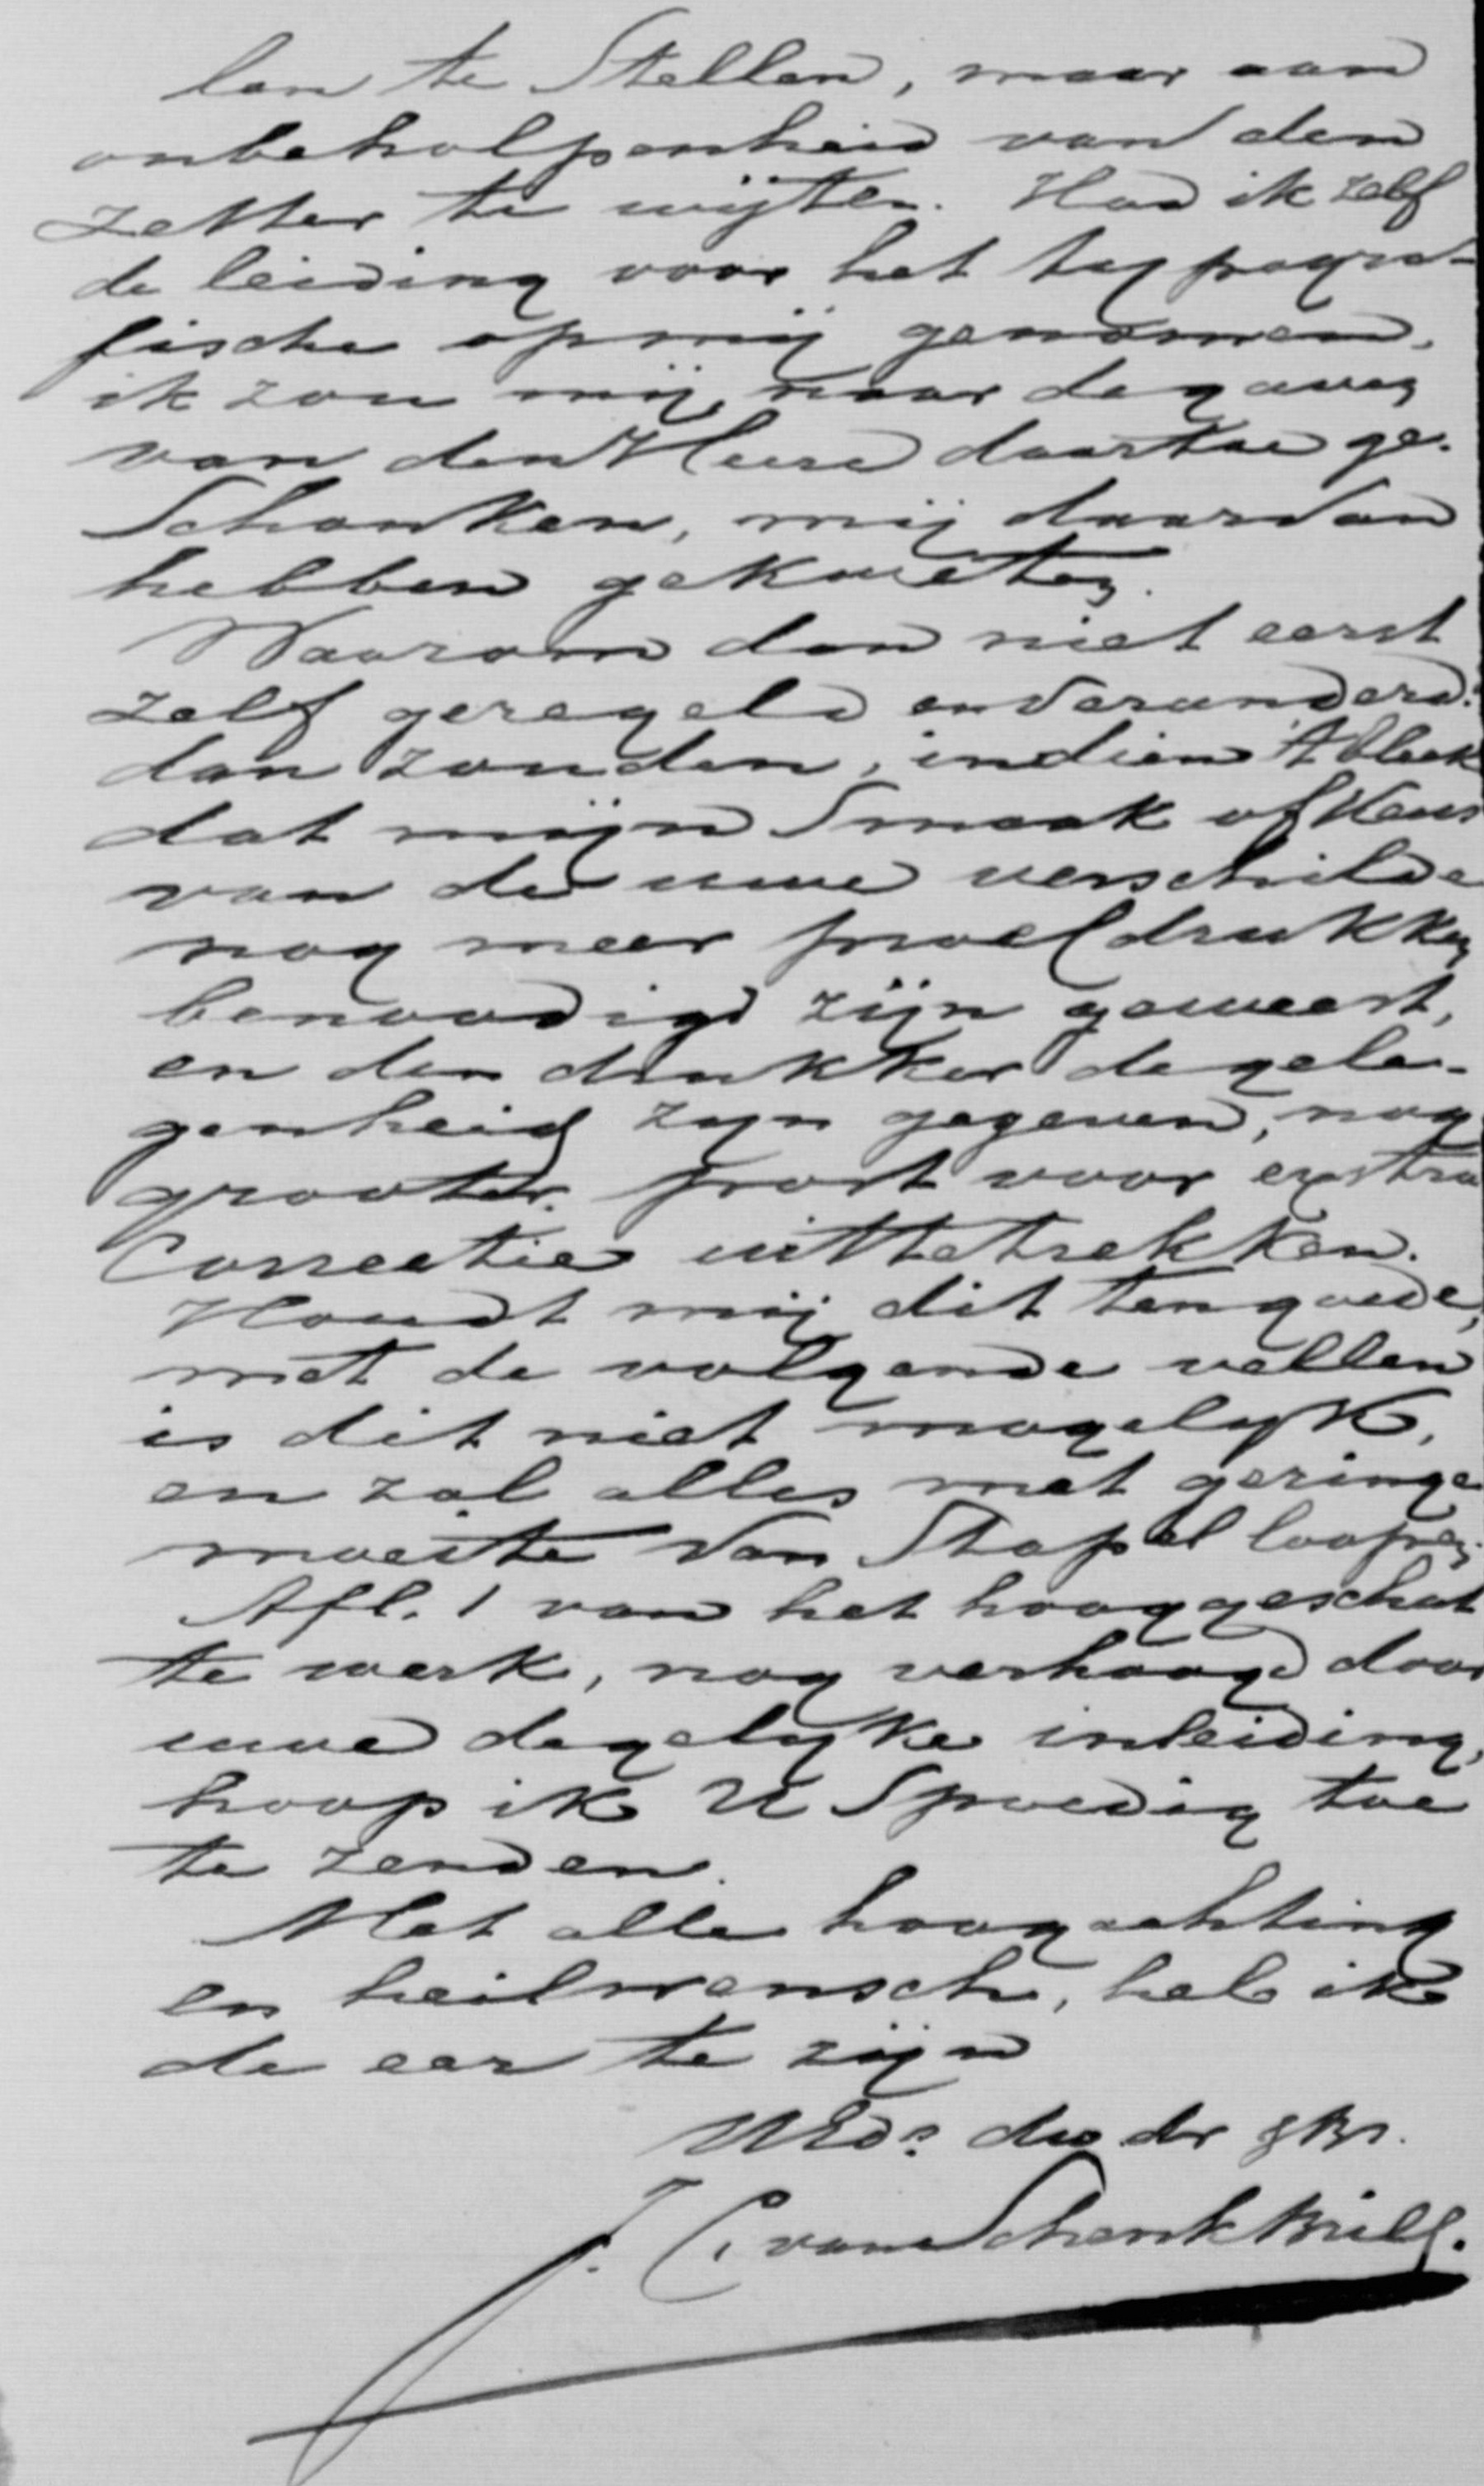 len te Stellen, maar aan
onbeholpenheid van den
zetter te wijten. Had ik zelf
de leiding voor het typogra-
fische op mij genomen,
ik zou mij, naar de gaven
van den Heere daartoe ge-
Schonken, mij daarvan
hebben gekweten.
Waarom dan niet eerst
zelf geregeld en veranderd?
dan zouden, indien 't bleek
dat mijn Smaak of keus
van de uwe verschilde
nog meer proefdrukken
benoodigd zijn geweest,
en den drukker de gele-
genheid zijn gegeven, nog
grooter post voor extra
Correctie uittetrekken.
Houdt mij dit ten goede,
met de volgende vellen
is dit niet mogelijk,
en zal alles met geringe
moeite van Stapel loopen.
Afl. 1 van het hooggeschat
te werk, nog verhoogd door
uwe degelijke inleiding,
hoop ik U Spoedig toe
te zenden.
Met alle hoogachting
en heilwensch, heb ik
de eer te zijn
UEd? dw. dr
J. C. van Schenk Brill.